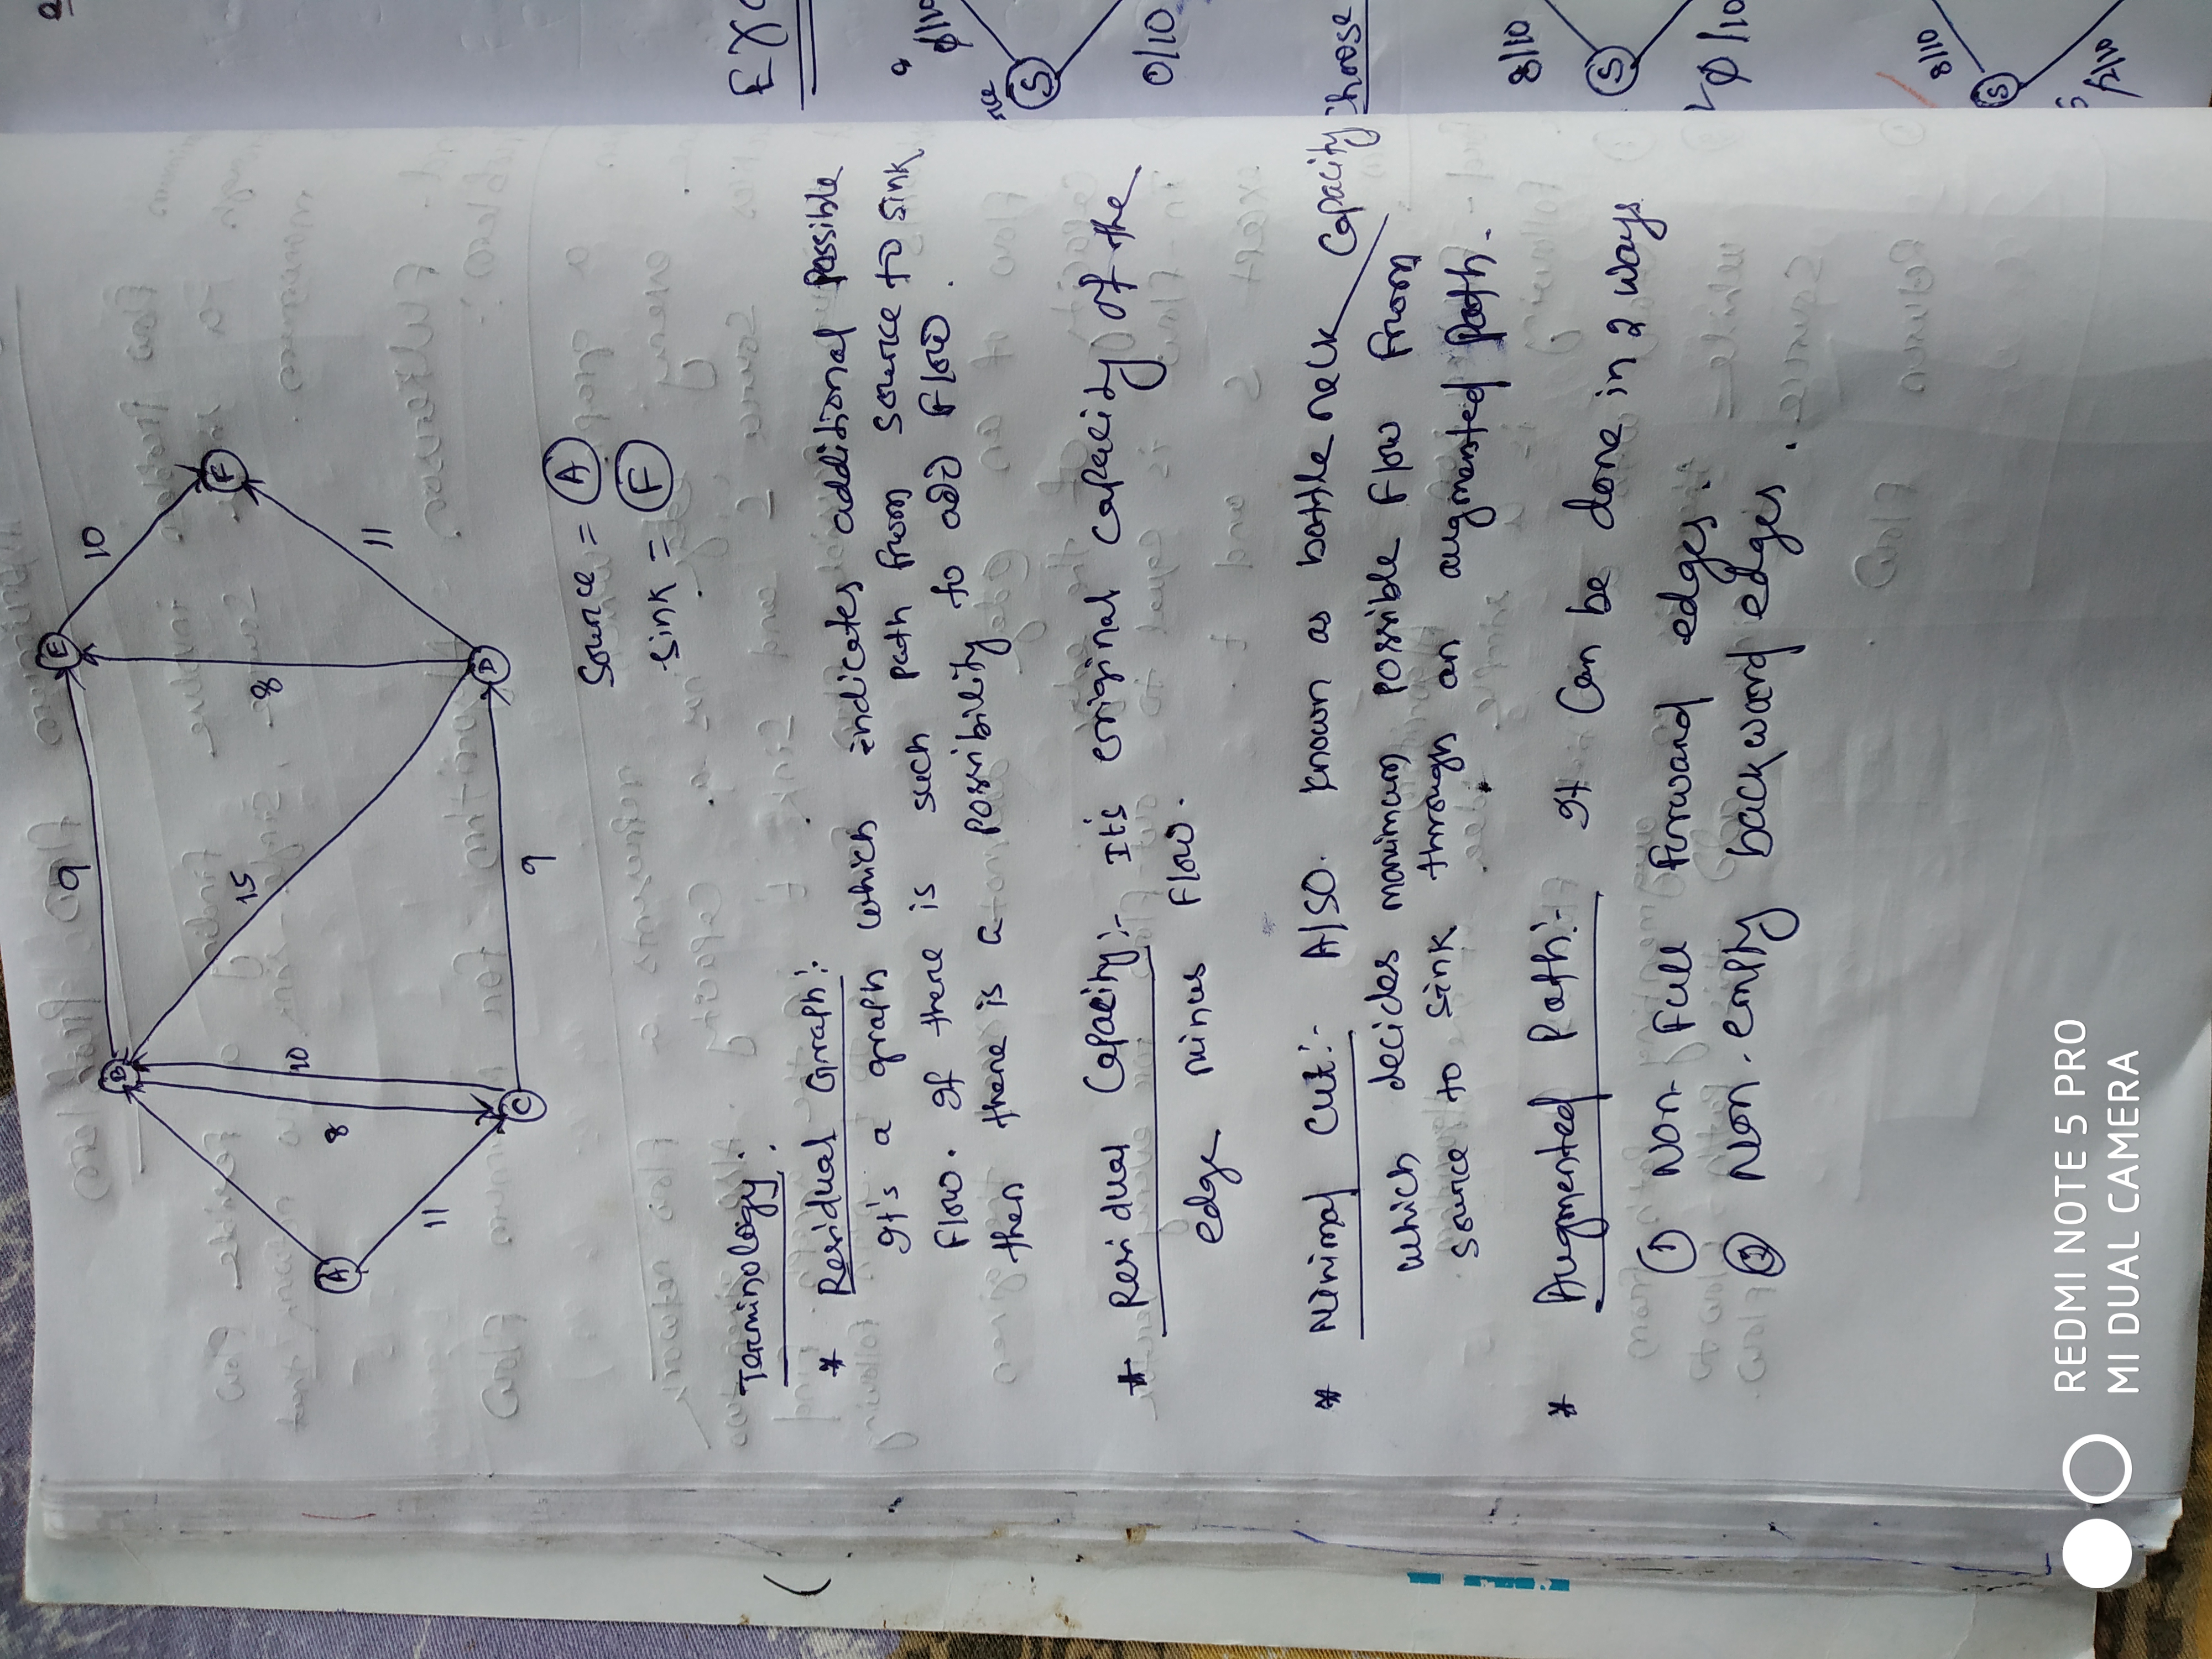 9
E
10
B
15
F
8
10
8
A
11
11
D
C
9
Source = A
Sink = F
Terminology:
* Residual Graph:-
It's a graph which indicates additional possible
Flow. If there is such path from source to sink
then there is a possibility to add Flow.
* Residual Capacity:- It's original capacity of the
edge minus Flow.
* Minimal cut:- Also known as bottle neck capacity
which decides maximum possible Flow from
source to sink through an augmented path.
* Augmented Path:- It can be done in 2 ways
① Non-Full forward edges.
② Non-empty backward edges.
S
0/10
Choose
8/10
S
0/10
8/10
S
REDMI NOTE 5 PRO
MI DUAL CAMERA